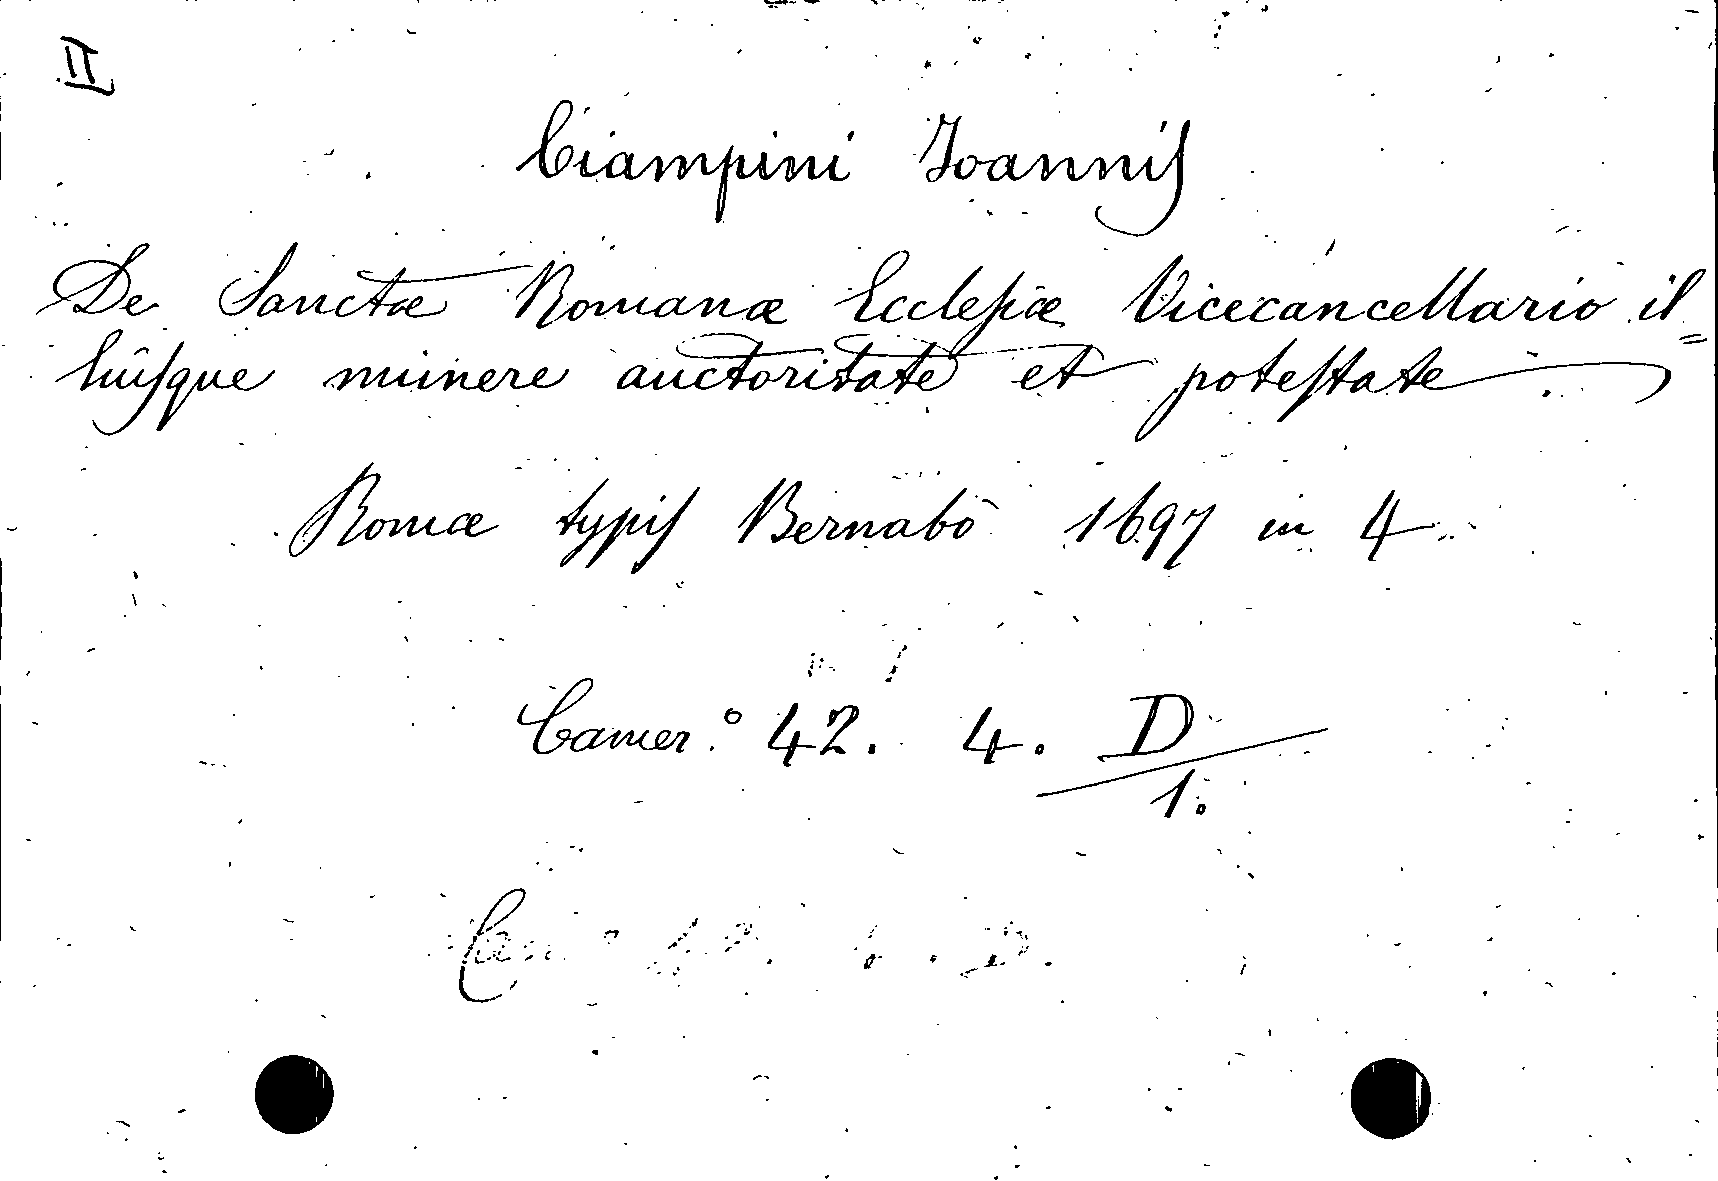 II
Ciampini Joannis
De Sanctæ Romanæ Ecclesiæ Vicecancellario il=
liusque munere auctoritate et potestate
Romæ typis Bernabò 1697 in 4
Camer.° 42. 4. D
1.